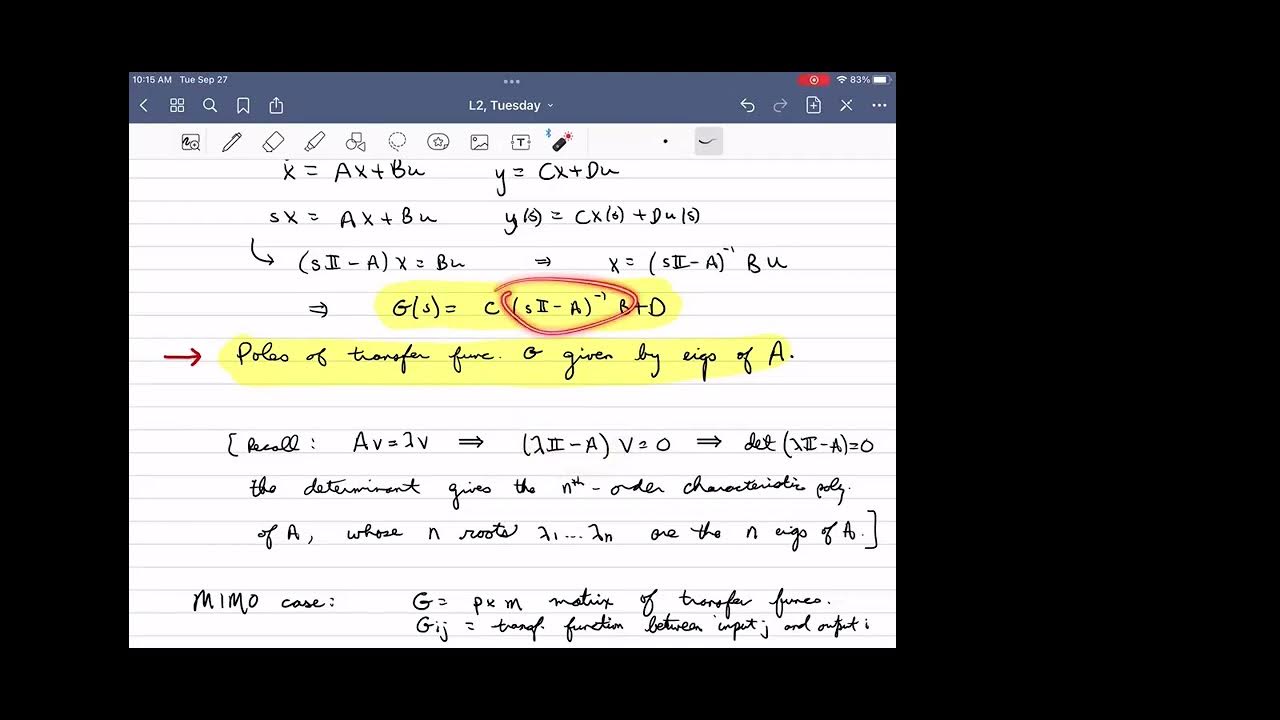 10:15 AM Tue Sep 27
83%
L2, Tuesday
ẋ = Ax + Bu y = Cx + Du
sx = Ax + Bu y(s) = Cx(s) + Du(s)
(s𝕀 - A) x = Bu ⇒ x = (s𝕀 - A)⁻¹ B u
⇒ G(s) = C (s𝕀 - A)⁻¹ B + D
→ Poles of transfer func. G given by eigs of A.
[ Recall: Av = λv ⇒ (λ𝕀 - A) v = 0 ⇒ det (λ𝕀 - A) = 0
the determinant gives the nth-order characteristic poly.
of A, whose n roots λ1 ... λn are the n eigs of A. ]
MIMO case: G = p x m matrix of transfer funcs.
Gij = transf. function between input j and output i